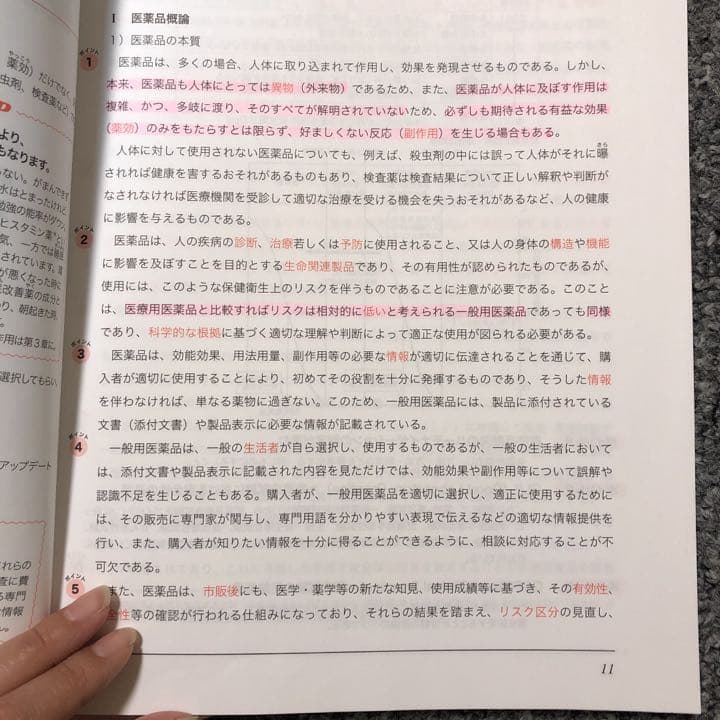 I 医薬品概論
1）医薬品の本質
ポイント
1
医薬品は、多くの場合、人体に取り込まれて作用し、効果を発現させるものである。しかし、
本来、医薬品も人体にとっては異物（外来物）であるため、また、医薬品が人体に及ぼす作用は
複雑、かつ、多岐に渡り、そのすべてが解明されていないため、必ずしも期待される有益な効果
（薬効）のみをもたらすとは限らず、好ましくない反応（副作用）を生じる場合もある。
さら
人体に対して使用されない医薬品についても、例えば、殺虫剤の中には誤って人体がそれに曝
されれば健康を害するおそれがあるものもあり、検査薬は検査結果について正しい解釈や判断が
なされなければ医療機関を受診して適切な治療を受ける機会を失うおそれがあるなど、人の健康
に影響を与えるものである。
ポイント
2
医薬品は、人の疾病の診断、治療若しくは予防に使用されること、又は人の身体の構造や機能
に影響を及ぼすことを目的とする生命関連製品であり、その有用性が認められたものであるが、
使用には、このような保健衛生上のリスクを伴うものであることに注意が必要である。このこと
は、医療用医薬品と比較すればリスクは相対的に低いと考えられる一般用医薬品であっても同様
であり、科学的な根拠に基づく適切な理解や判断によって適正な使用が図られる必要がある。
ポイント
3
医薬品は、効能効果、用法用量、副作用等の必要な情報が適切に伝達されることを通じて、購
入者が適切に使用することにより、初めてその役割を十分に発揮するものであり、そうした情報
を伴わなければ、単なる薬物に過ぎない。このため、一般用医薬品には、製品に添付されている
文書（添付文書）や製品表示に必要な情報が記載されている。
ポイント
4
一般用医薬品は、一般の生活者が自ら選択し、使用するものであるが、一般の生活者において
は、添付文書や製品表示に記載された内容を見ただけでは、効能効果や副作用等について誤解や
認識不足を生じることもある。購入者が、一般用医薬品を適切に選択し、適正に使用するために
は、その販売に専門家が関与し、専門用語を分かりやすい表現で伝えるなどの適切な情報提供を
行い、また、購入者が知りたい情報を十分に得ることができるように、相談に対応することが不
可欠である。
ポイント
5
また、医薬品は、市販後にも、医学・薬学等の新たな知見、使用成績等に基づき、その有効性、
全性等の確認が行われる仕組みになっており、それらの結果を踏まえ、リスク区分の見直し、
11